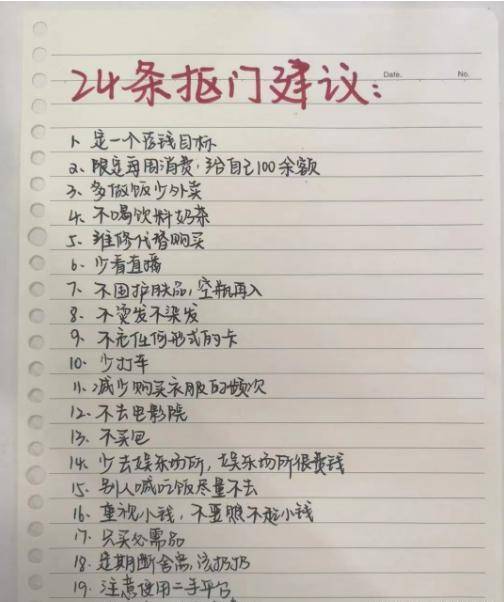 24条抠门建议:
Date.
No.
1、定一个存钱目标
2、限定每周消费,给自己100余额
3、多做饭少外卖
4、不喝饮料奶茶
5、维修代替购买
6、少看直播
7、不囤护肤品,空瓶再入
8、不烫发不染发
9、不充任何形式的卡
10、少打车
11、减少购买衣服的频次
12、不去电影院
13、不买包
14、少去娱乐场所,娱乐场所很费钱
15、别人喊吃饭尽量不去
16、重视小钱,不要瞧不起小钱
17、只买必需品
18、定期断舍离,该扔扔
19、注意使用二手平台